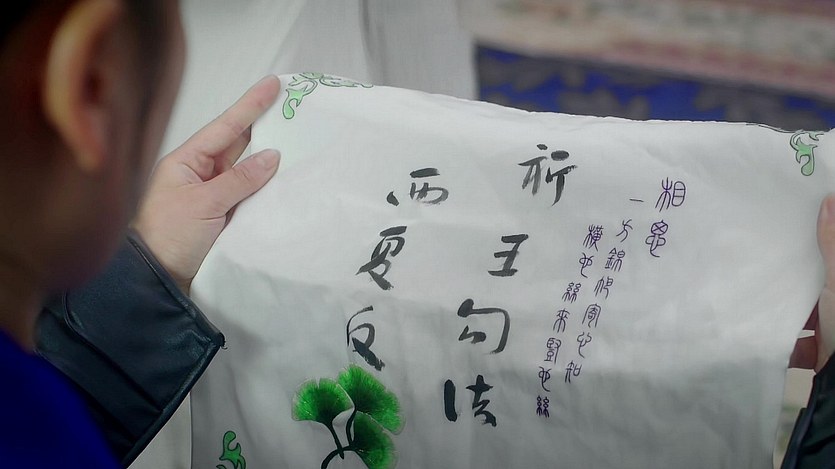 相思
一方錦帕寄心知
橫也絲來豎也絲
祈丑勾法
西夏反